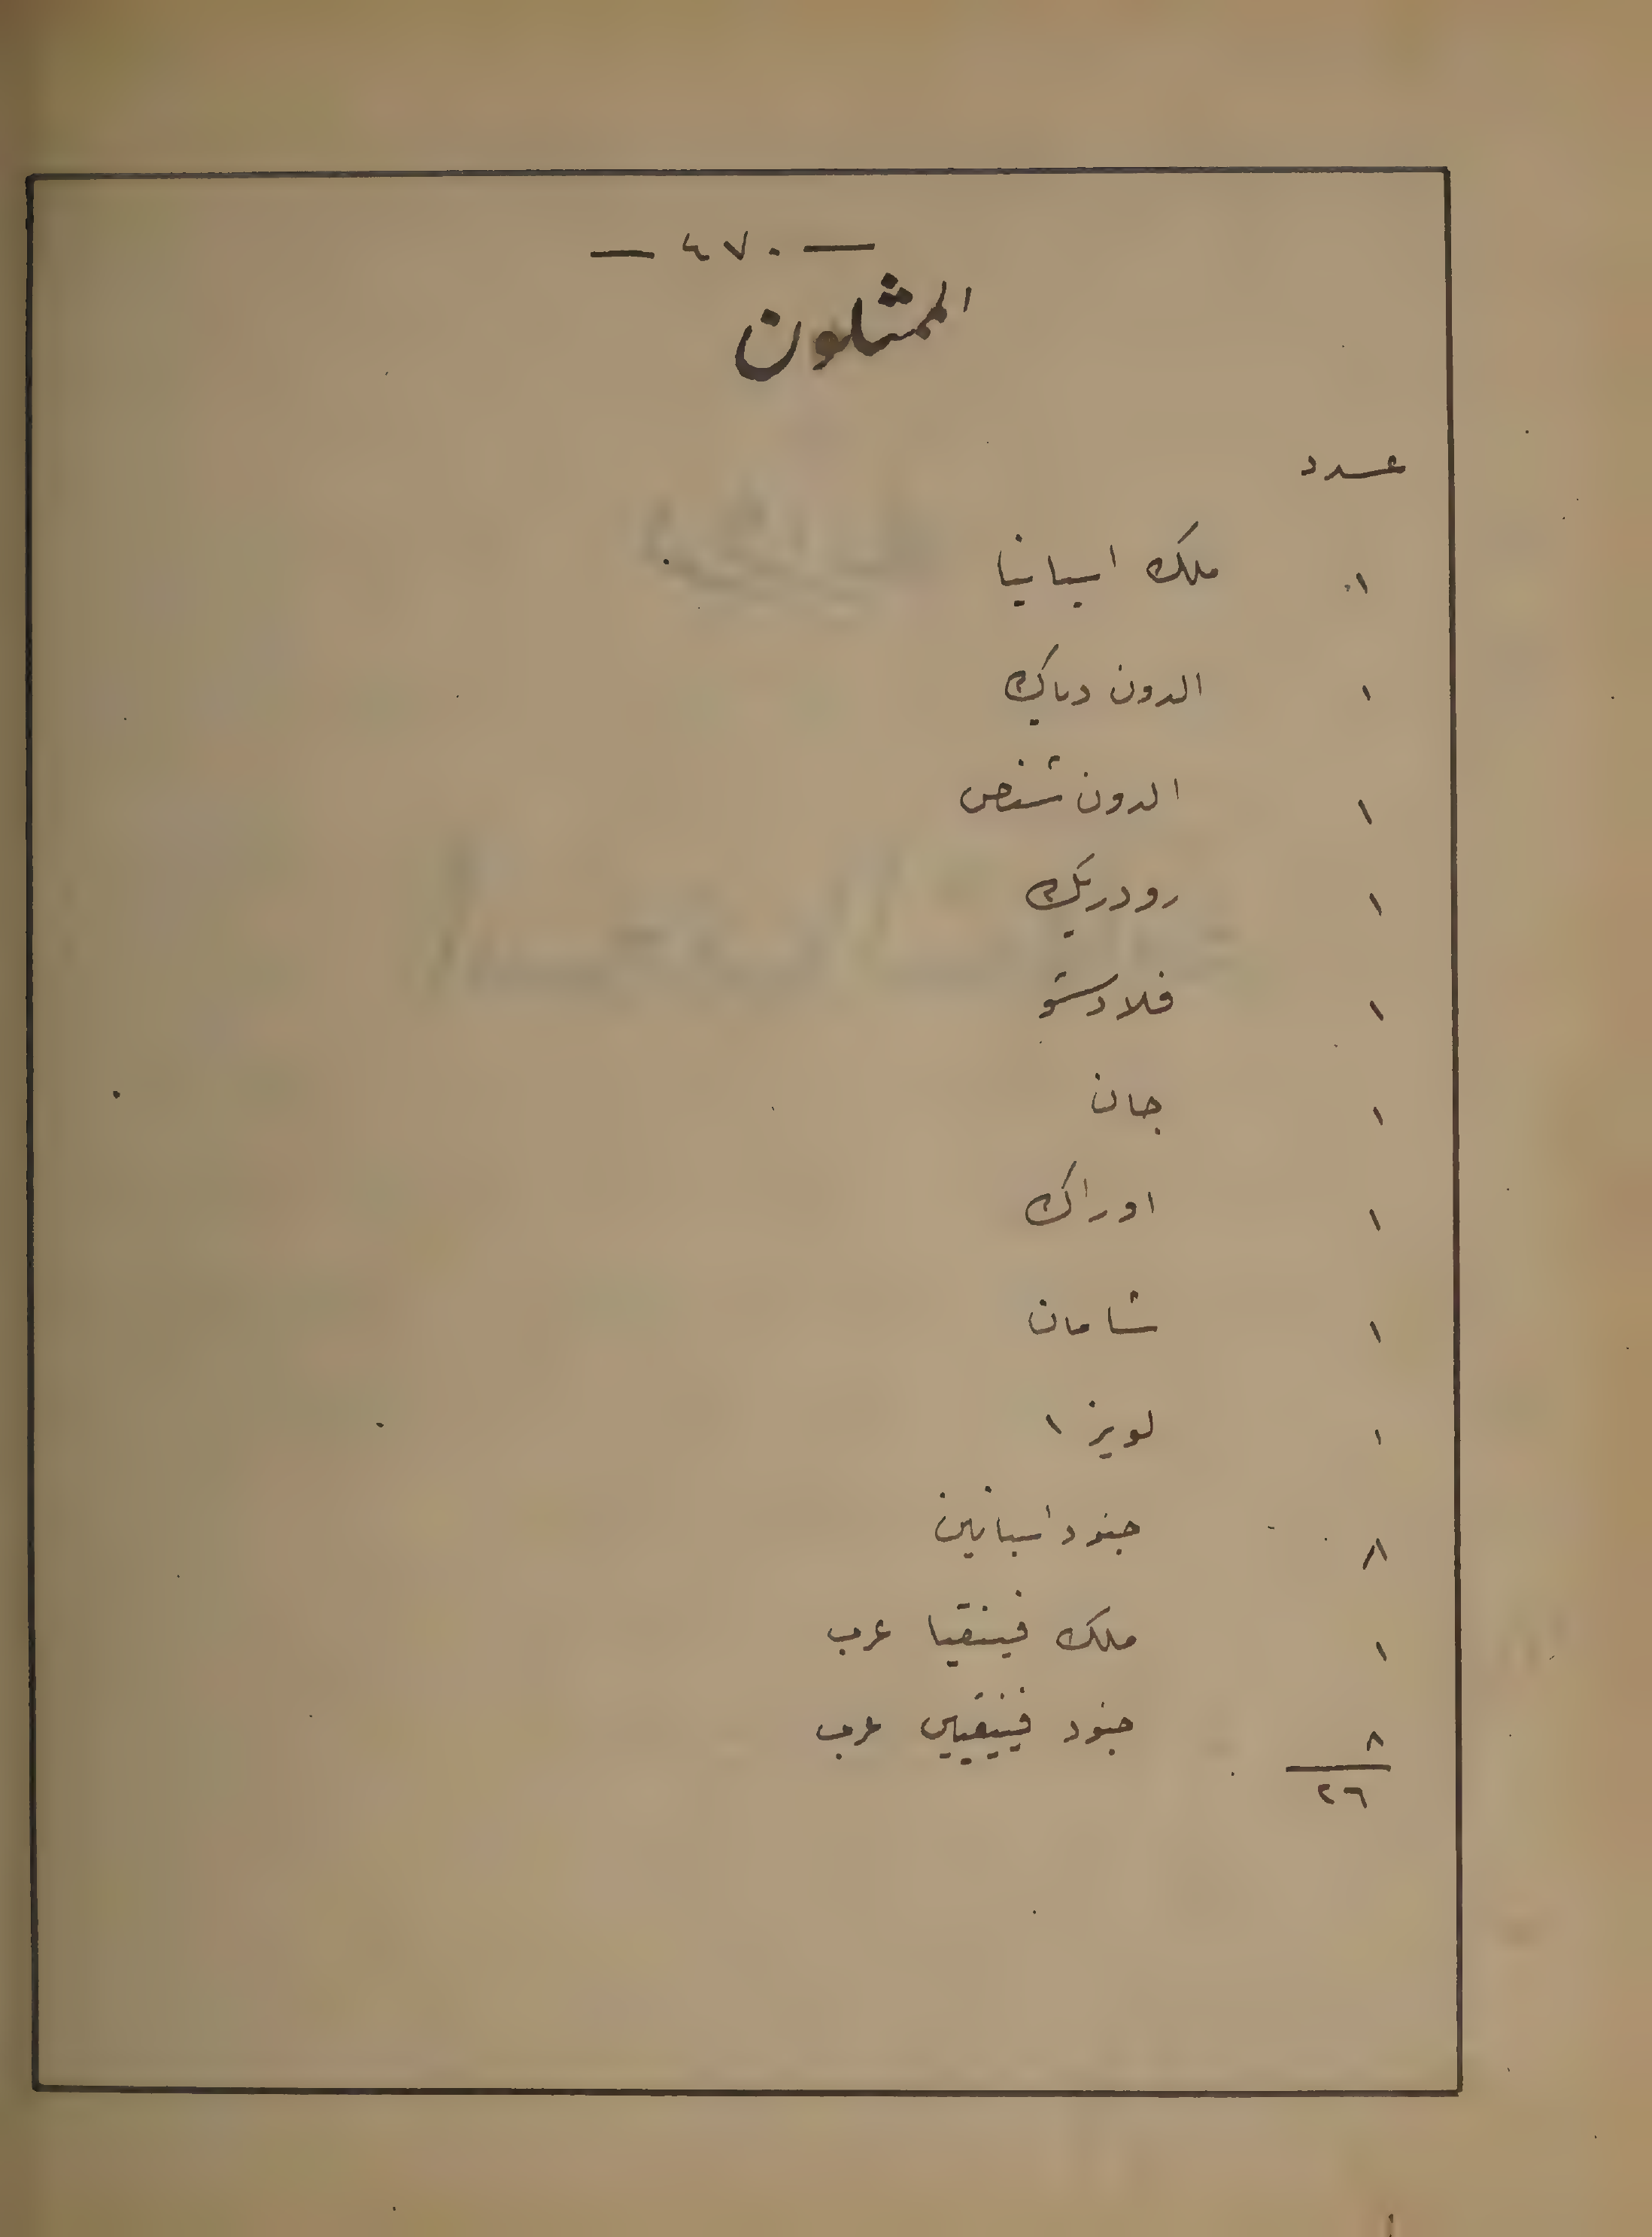 — ٤٧٠ —
الممثلون
عدد
١ ملك اسبانيا
١ الدون دياك
١ الدون شنص
١ رودريك
١ فلادستو
١ جان
١ اوراك
١ شامان
١ لويز ١
٨ جنود اسبانين
١ ملك فينقيا عرب
٨ جنود فينيقيين عرب
٢٦